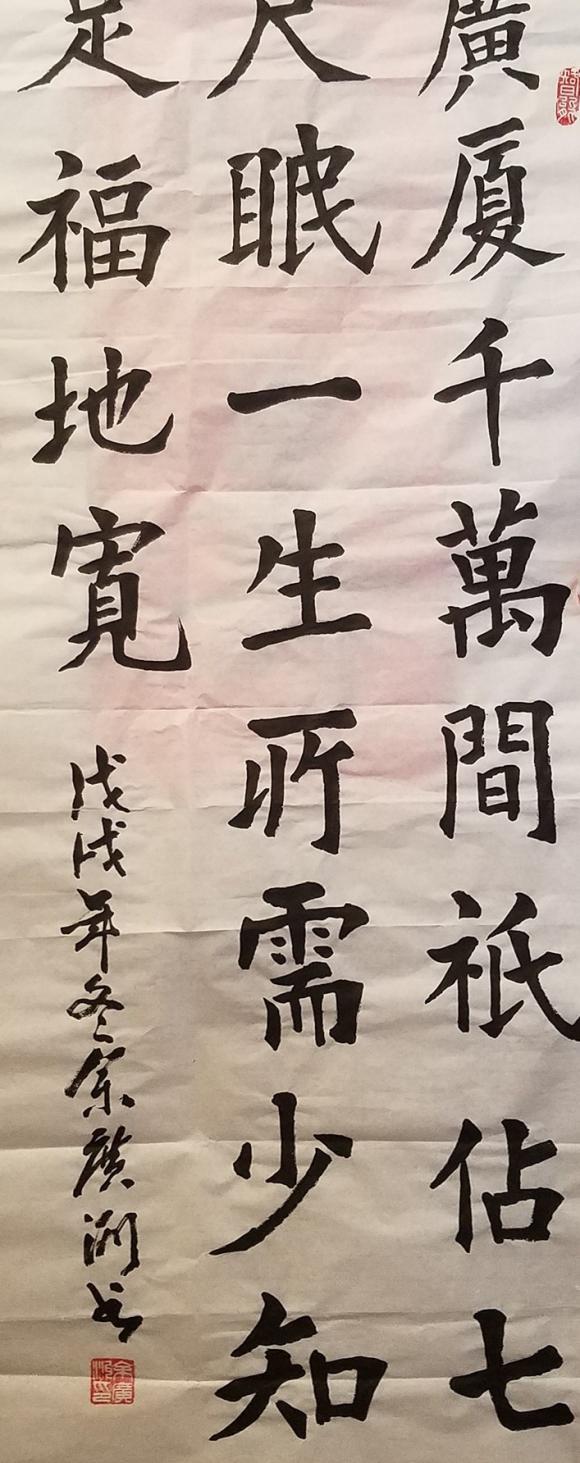 廣厦千萬間祇佔七
尺眠一生所需少知
足福地寬
戊戌年冬余廣洲书
余廣洲印